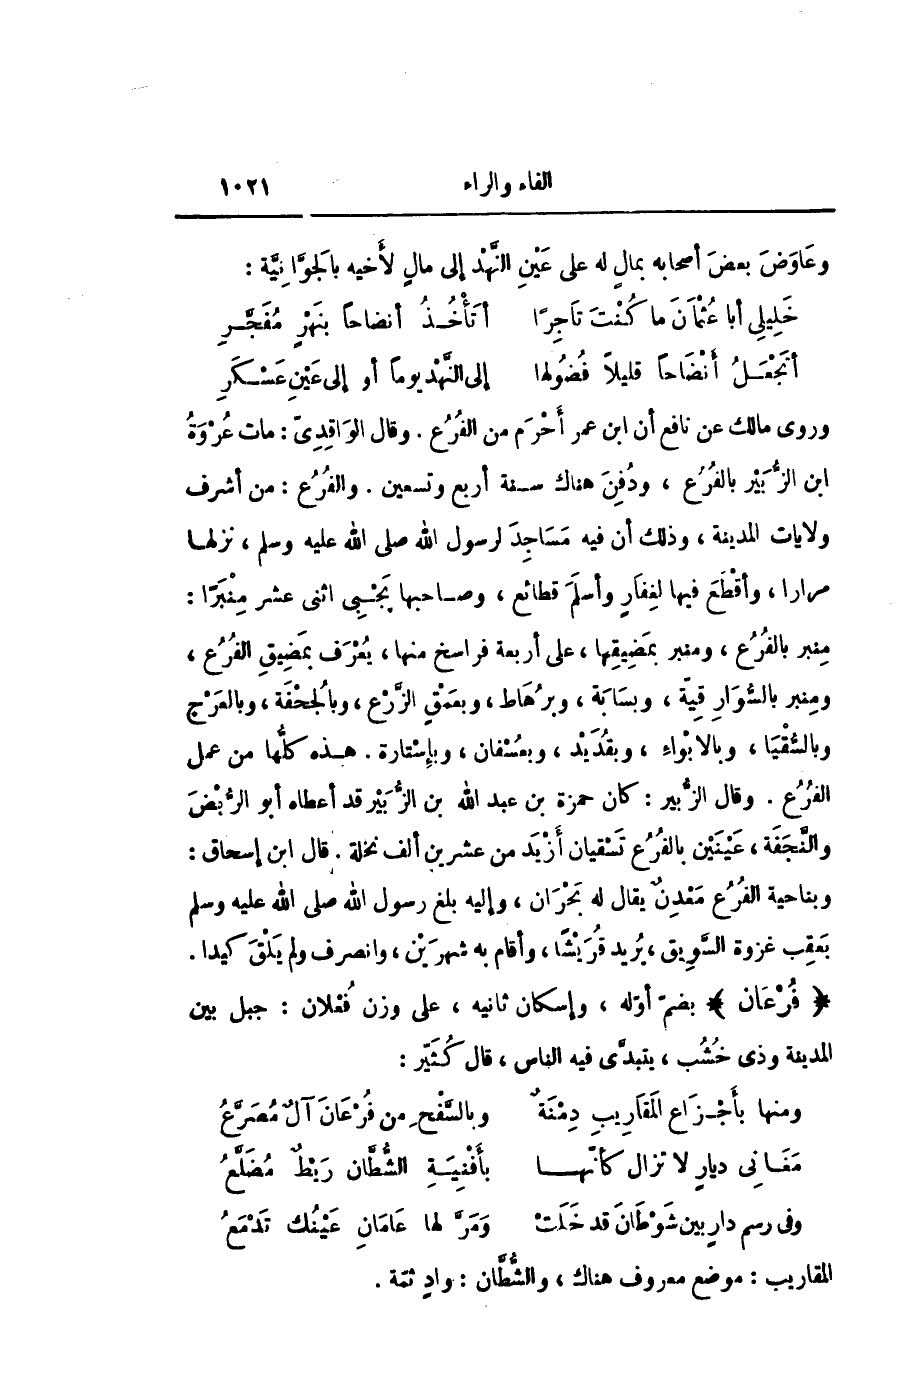 الفاء والراء ١٠٢١
وعَاوَضَ بعضَ أصحابه بمالٍ له على عَيْنِ النَّهْد إلى مالٍ لأَخيه بالجوَّانِيَّة :
خَلِيلِى أبا عُثْمَانَ ما كُنْتَ تاجِرًا أَتَأْخُذُ أنضاحاً بنَهرٍ مُفَجَّرِ
أَتَجْعَلُ أَنْضَاحًا قليلاً فُضُولها إلى النَّهْد يوماً أو إلى عَيْنِ عَسْكَرِ
وروى مالك عن نافع أن ابن عمر أَحْرَم من الفُرُع . وقال الوَاقِدِىّ : مات عُرْوَةُ
ابن الزُّبَيْر بالفُرُع ، ودُفِنَ هناك سنة أربع وتسعين . والفُرُع : من أشرف
ولايات المدينة ، وذلك أن فيه مَسَاجِدَ لرسول الله صلى الله عليه وسلم ، نزلها
مرارا ، وأقْطَعَ فيها لغِفَارٍ وأسلَمَ قطائع ، وصاحبها يَجْبِى اثنى عشر مِنْبَرًا :
مِنبر بالفُرُع ، ومنبر بمَضِيقِها ، على أربعة فراسخ منها ، يُعْرَف بمَضِيقِ الفُرُع ،
ومِنبر بالسُّوَارِقِيَّة ، وبسَايَة ، وبرُهَاط ، وبعَمْقِ الزَّرْع ، وبالجُحْفَة ، وبالعَرْج
وبالسُّقْيَا ، وبالأبْواء ، وبقُدَيْد ، وبعُسْفان ، وبإِسْتارة . هذه كلُّها من عمل
الفُرُع . وقال الزُّبير : كان حمزة بن عبد الله بن الزُّبَيْر قد أعطاه أبو الرُّبْضَ
والنَّجَفَة ، عَيْنَيْن بالفُرُع تَسْقيان أزْيَد من عشرين ألف نخلة . قال ابن إسحاق :
وبناحية الفُرُع مَعْدِنٌ يقال له بَحْرَان ، وإليه بلغ رسول الله صلى الله عليه وسلم
بعَقِب غزوة السَّوِيق ، يُريد قُرَيْشًا ، وأقام به شهرَيْن ، وانصرف ولم يَلْقَ كيدا .
﴿ فُرْعَان ﴾ بضمّ أوّله ، وإسكان ثانيه ، على وزن فُعْلان : جبل بين
المدينة وذى خُشُب ، يتبدَّى فيه الناس ، قال كُثَيّر :
ومنها بأَجْزَاع المَقَارِيبِ دِمْنَةٌ وبالسَّفْحِ من فُرْعَانَ آلٌ مُصَرَّعُ
مَغَانِى ديارٍ لا تزال كأنّها بأفْنِيَةِ الشُّطَّان رَيْطٌ مُضَلَّعُ
وفى رسم دارٍ بين شَوْطَانَ قد خَلَتْ وَمَرَّ لها عَامَانِ عَيْنُك تَدْمَعُ
المقاريب : موضع معروف هناك ، والشُّطَّان : وادٍ ثمّة .